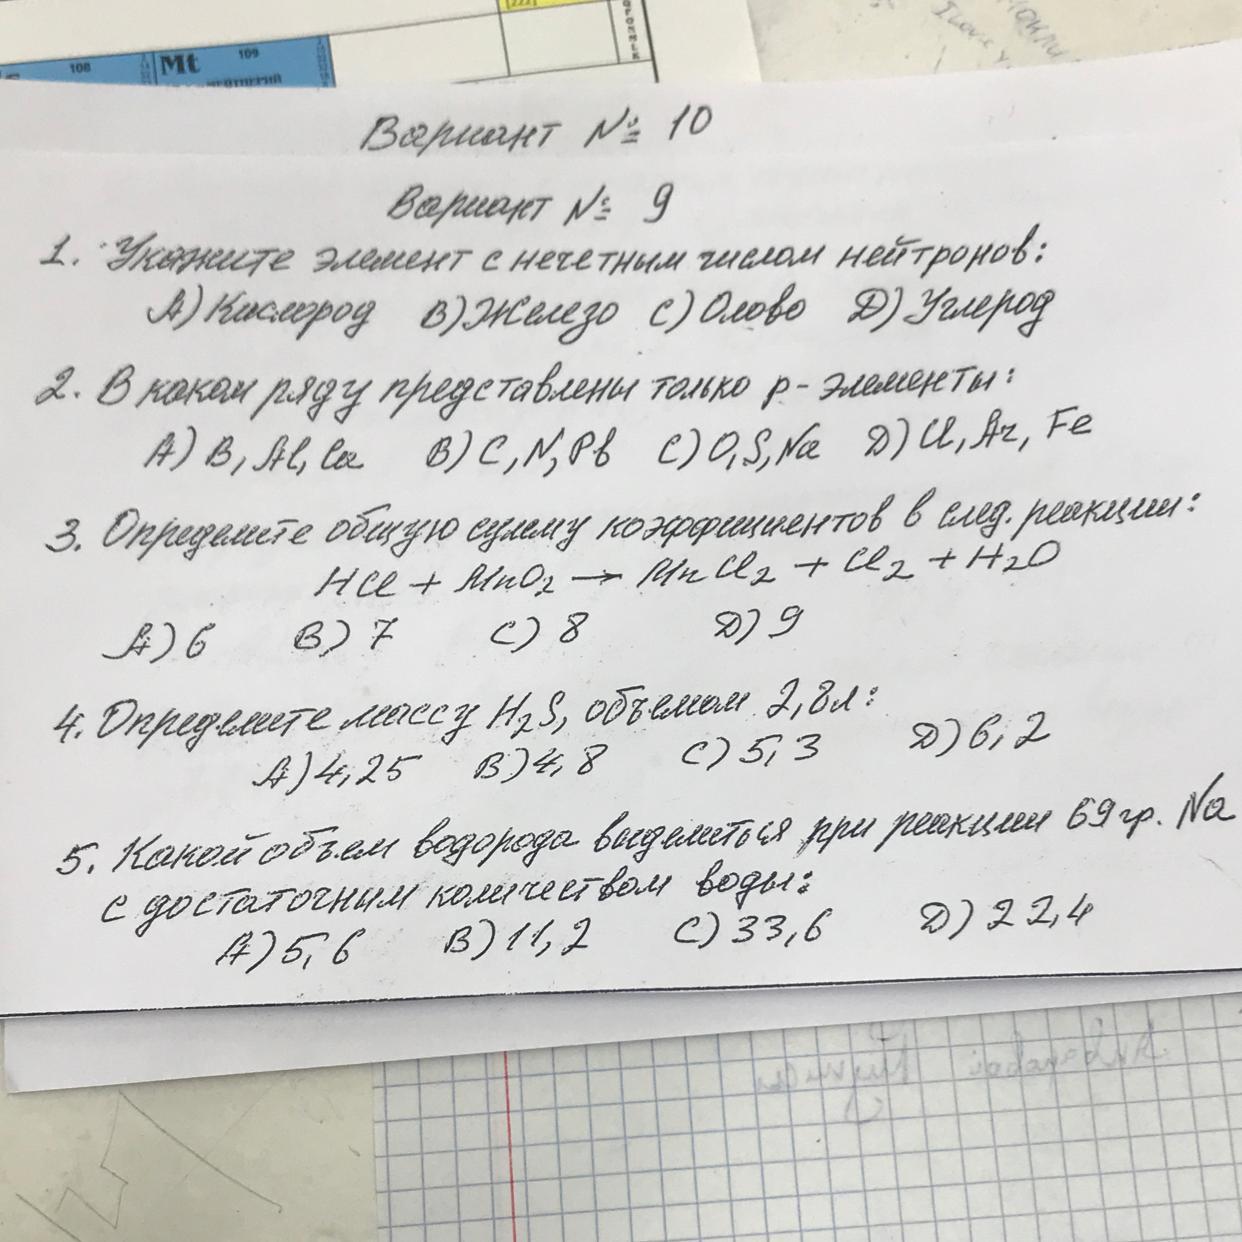 [222]
108
Mt
109
Вариант № 10
Вариант № 9
1. Укажите элемент с нечетным числом нейтронов:
А) Кислород В) Железо С) Олово D) Углерод
2. В каком ряду представлены только р-элементы:
А) B, Al, Ca В) C, N, Pb С) O, S, Na D) Cl, Ar, Fe
3. Определите общую сумму коэффициентов в след. реакции:
HCl + MnO2 → MnCl2 + Cl2 + H2O
А) 6 В) 7 С) 8 D) 9
4. Определите массу H2S, объемом 2,8л:
А) 4,25 В) 4,8 С) 5,3 D) 6,2
5. Какой объем водорода выделиться при реакции 69 гр. Na
с достаточным количеством воды:
А) 5,6 В) 11,2 С) 33,6 D) 22,4